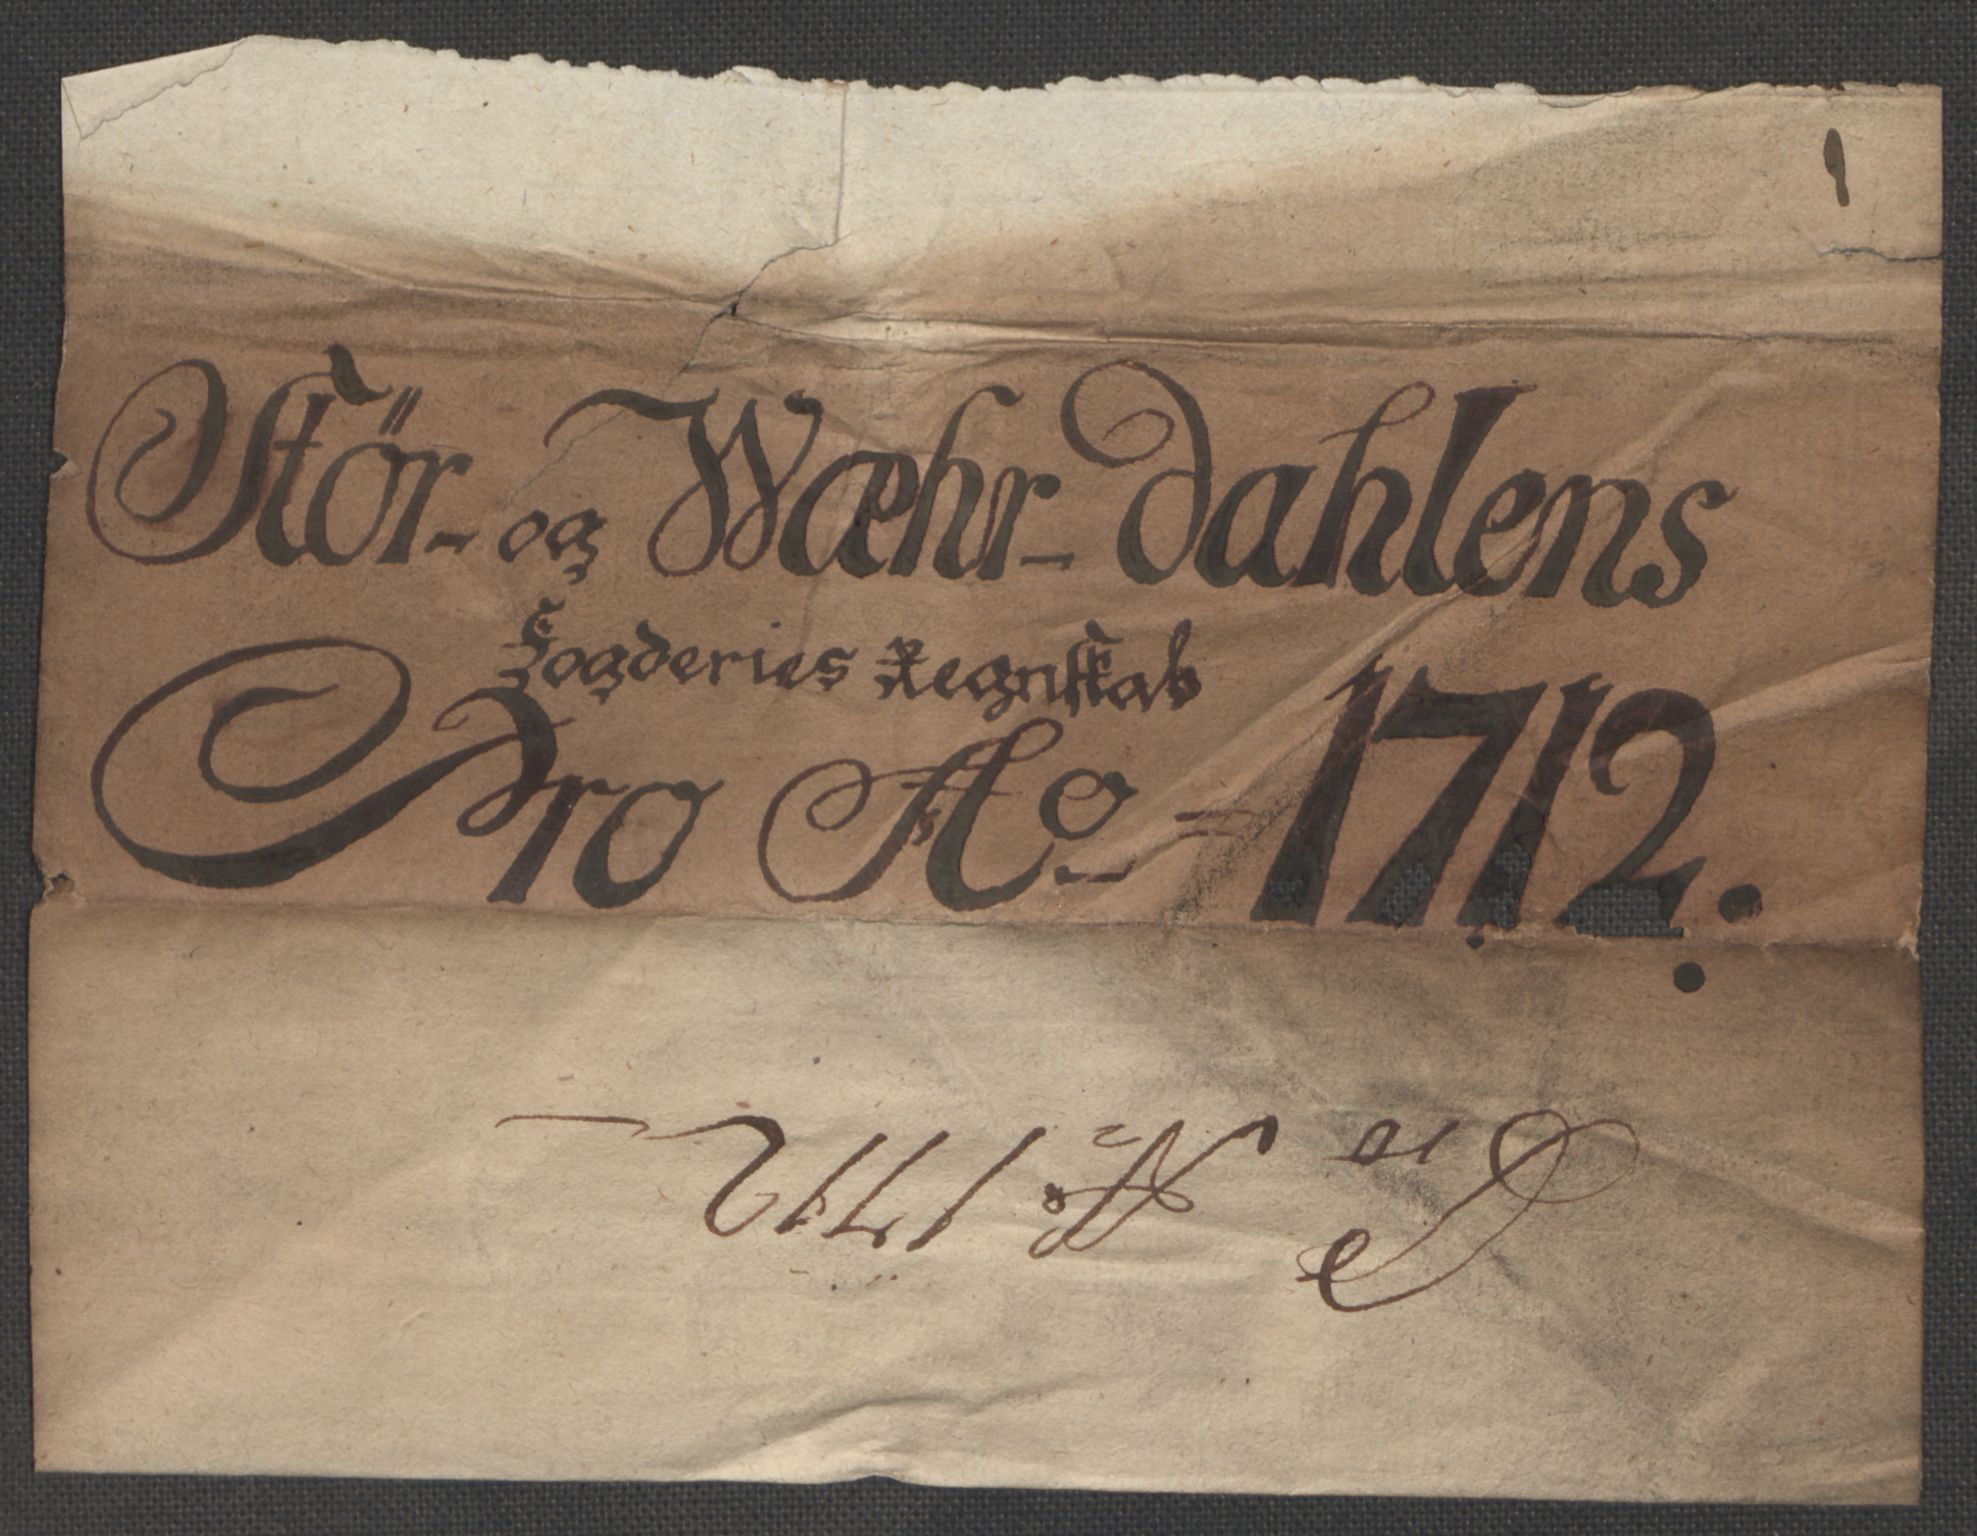 Stör- og Wæhr-dahlens
Fogderies Regnskab
Pro Ao- 1712.
Pro Ao 1712